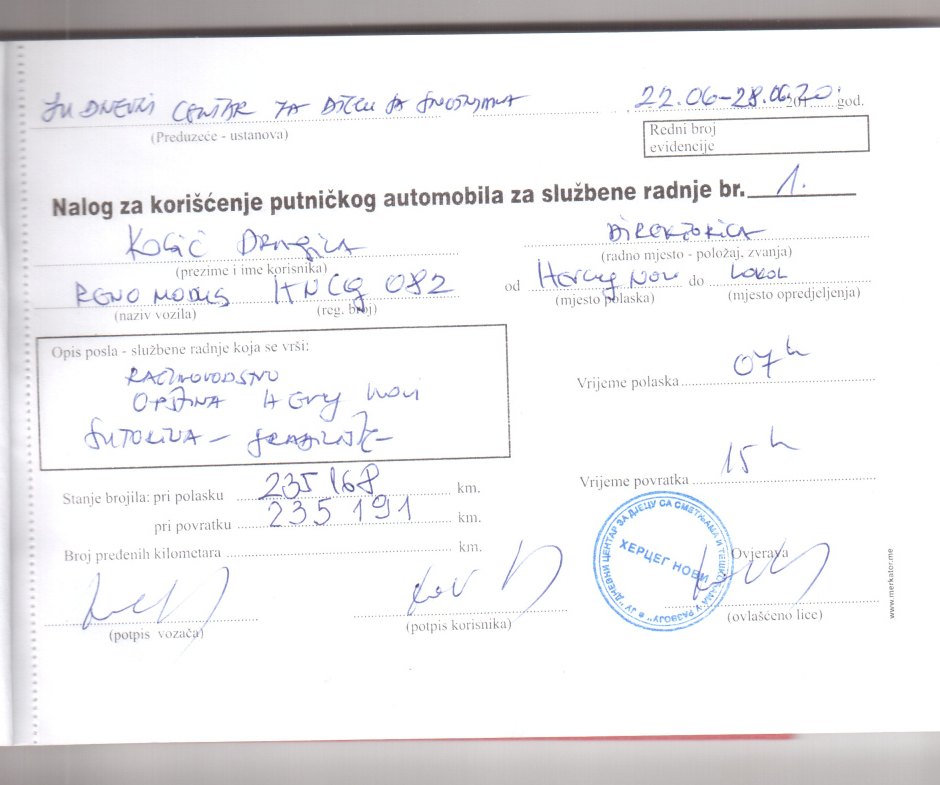 JU DNEVNI CENTAR ZA DJECU SA SMETNJAMA 22.06-28.06.2020. god.
(Preduzeće - ustanova)
Redni broj
evidencije
Nalog za korišćenje putničkog automobila za službene radnje br. 1.
Kosić Dragica DIREKTORICA
(prezime i ime korisnika) (radno mjesto - položaj. zvanja)
RENO MODUS HNCG 082 od Herceg Novi do LOKAL
(naziv vozila) (reg. broj) (mjesto polaska) (mjesto opredjeljenja)
Opis posla - službene radnje koja se vrši:
RAČUNOVODSTVO
OPŠTINA Herceg Novi
SUTORINA - GRADILIŠTE
Vrijeme polaska 07 h
Stanje brojila: pri polasku 235 168 km.
Vrijeme povratka 15 h
pri povratku 235 191 km.
Broj pređenih kilometara km.
Ovjerava
(potpis vozača) (potpis korisnika) (ovlašćeno lice)
ЈУ "ДНЕВНИ ЦЕНТАР ЗА ДЈЕЦУ СА СМЕТЊАМА И ТЕШКОЋАМА У РАЗВОЈУ"
ХЕРЦЕГ НОВИ
www.merkator.me